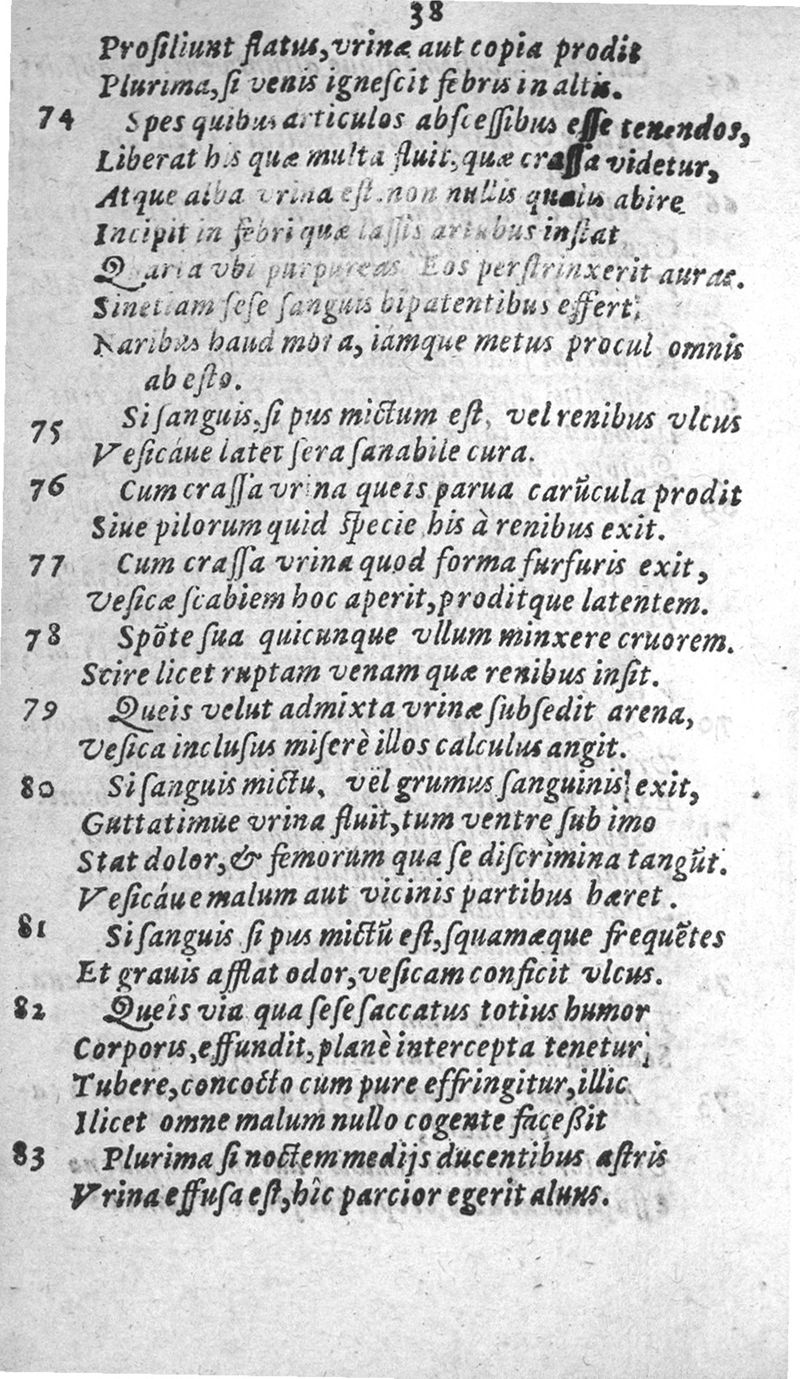 38
Proſiliunt flatus, vrinæ aut copia prodit
Plurima, ſi venis igneſcit febris in altis.
74 Spes quibus articulos abſceſſibus eſſe tenendos,
Liberat his quæ multa fluit, quæ craſſa videtur,
Atque alba vrina eſt. non nullis qualis abire
Incipit in febri quæ laſſis artubus inſtat
Quarta vbi purpureas Eos perſtrinxerit auras.
Sin etiam ſeſe ſanguis bipatentibus effert,
Naribus haud mora, iamque metus procul omnis
ab eſto.
75 Si ſanguis, ſi pus mictum eſt, vel renibus vlcus
Veſicáue latet ſera ſanabile cura.
76 Cum craſſa vrina queis parua carũcula prodit
Siue pilorum quid ſpecie his à renibus exit.
77 Cum craſſa vrina quod forma furfuris exit,
Veſicæ ſcabiem hoc aperit, proditque latentem.
78 Spõte ſua quicunque vllum minxere cruorem.
Scire licet ruptam venam quæ renibus inſit.
79 Queis velut admixta vrinæ ſubſedit arena,
Veſica incluſus miſerè illos calculus angit.
80 Si ſanguis mictu, vel grumus ſanguinis exit,
Guttatimue vrina fluit, tum ventre ſub imo
Stat dolor, & femorum qua ſe diſcrimina tangũt.
Veſicáue malum aut vicinis partibus hæret.
81 Si ſanguis ſi pus mictũ eſt, ſquamæque frequẽtes
Et grauis afflat odor, veſicam conficit vlcus.
82 Queîs via qua ſeſe ſaccatus totius humor
Corporis, effundit, planè intercepta tenetur
Tubere, concocto cum pure effringitur, illic
Ilicet omne malum nullo cogente faceßit
83 Plurima ſi noctem medijs ducentibus aſtris
Vrina effuſa eſt, hîc parcior egerit aluus.